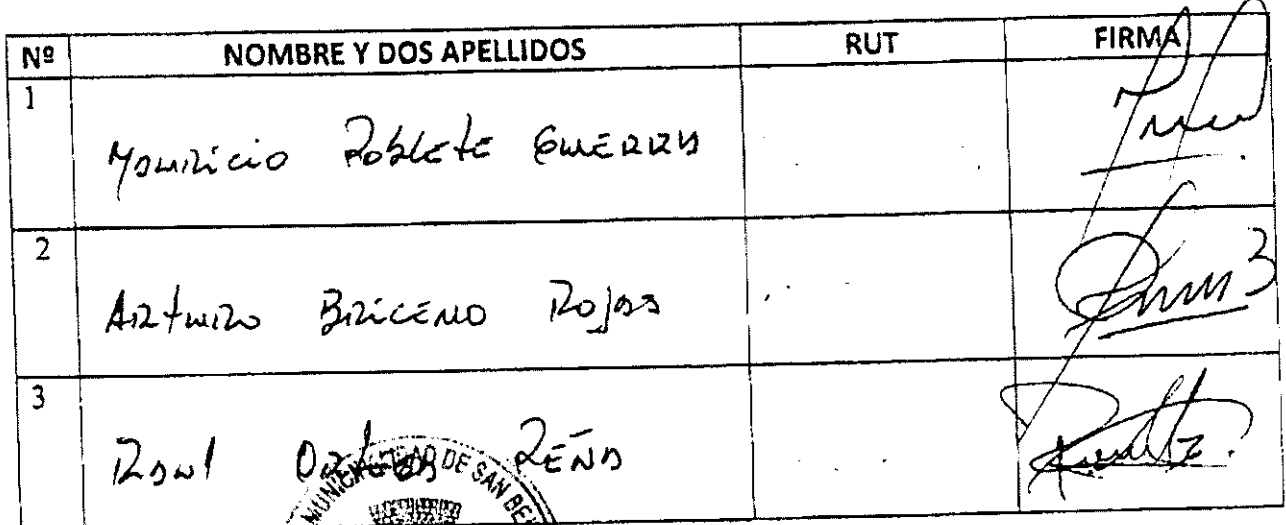 Nº NOMBRE Y DOS APELLIDOS RUT FIRMA
1
Mauricio Poblete Guerra
2
Arturo Briceno Rojas
3
Raul Peña
DE SAN BE